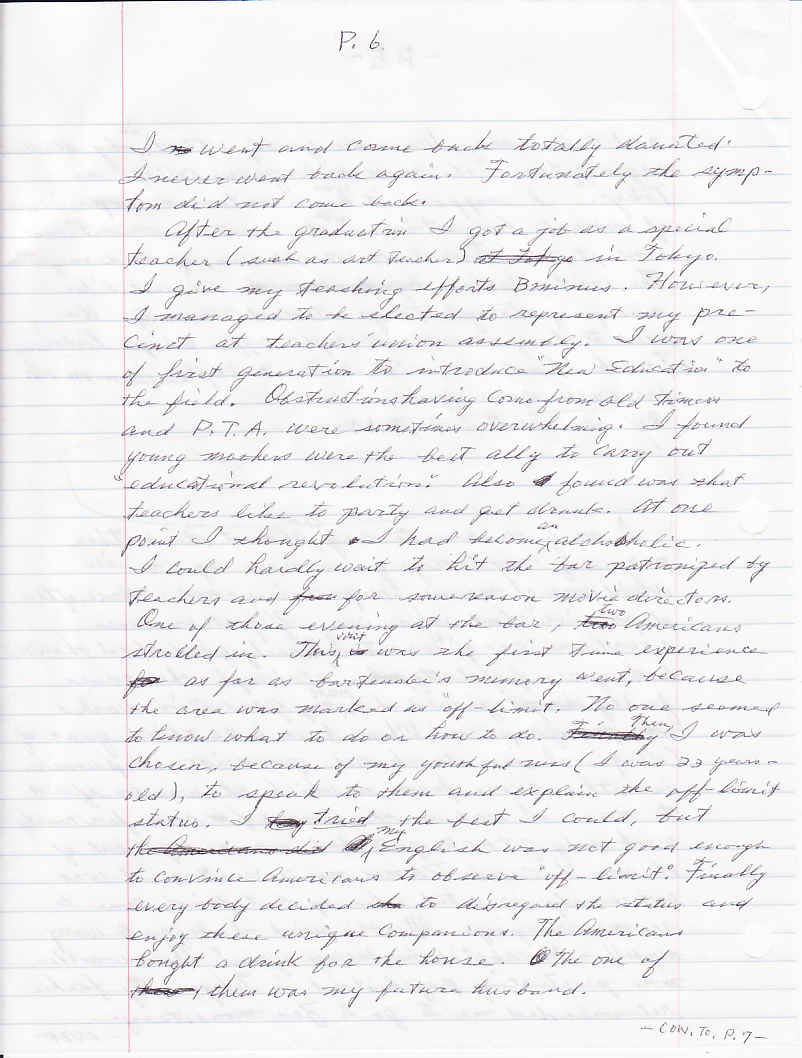 P. 6.
I went and come back totally daunted.
I never went back again. Fortunately the symp-
tom did not come back.
After the graduation I got a job as a special
teacher (such as art teacher) at Tokyo in Tokyo.
I give my teaching efforts B minus. However,
I managed to be elected to represent my pre-
cinct at teachers' union assembly. I was one
of first generation to introduce "New Education" to
the field. Obstructions having come from old timers
and P.T.A. were sometimes overwhelming. I found
young mothers were the best ally to carry out
"educational revolution". Also found was that
teachers like to party and get drunk. At one
point I thought I had become an alchoholic.
I could hardly wait to hit the bar patronized by
teachers and for some reason movie directors.
One of those evening at the bar, two Americans
strolled in. This visit was the first time experience
as far as bartender's memory went, because
the area was marked as "off-limit. No one seemed
to know what to do or how to do. Then, I was
chosen, because of my youthful ness (I was 23 years-
old), to speak to them and explain the off-limit
status. I tried the best I could, but
the Americans did my English was not good enough
to convince Americans to observe "off-limit". Finally
every body decided to disregard the status and
enjoy these unique companions. The Americans
bought a drink for the house. The one of
them was my future husband.
- CON. TO. P. 7 -